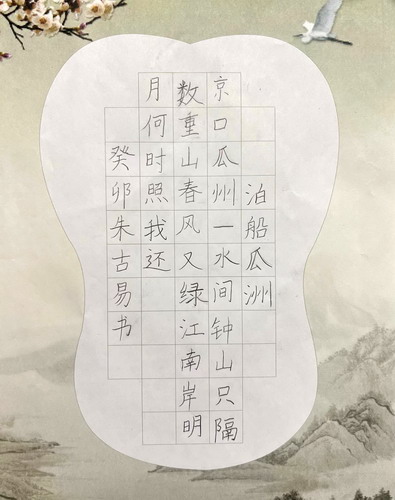 泊船瓜洲
京口瓜州一水间钟山只隔
数重山春风又绿江南岸明
月何时照我还
癸卯朱古易书